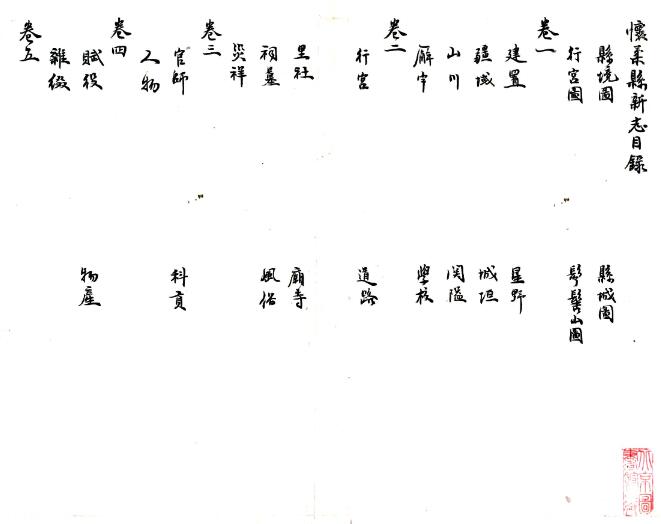 懷柔縣新志目錄
縣境圖 縣城圖
行宮圖 髽髻山圖
卷一
建置 星野
疆域 城垣
山川 関隘
廨宇 學校
卷二
行宮 道路
里社 廟寺
祠墓 風俗
災祥
卷三
官師 科貢
人物
卷四
賦役 物產
雜綴
卷五